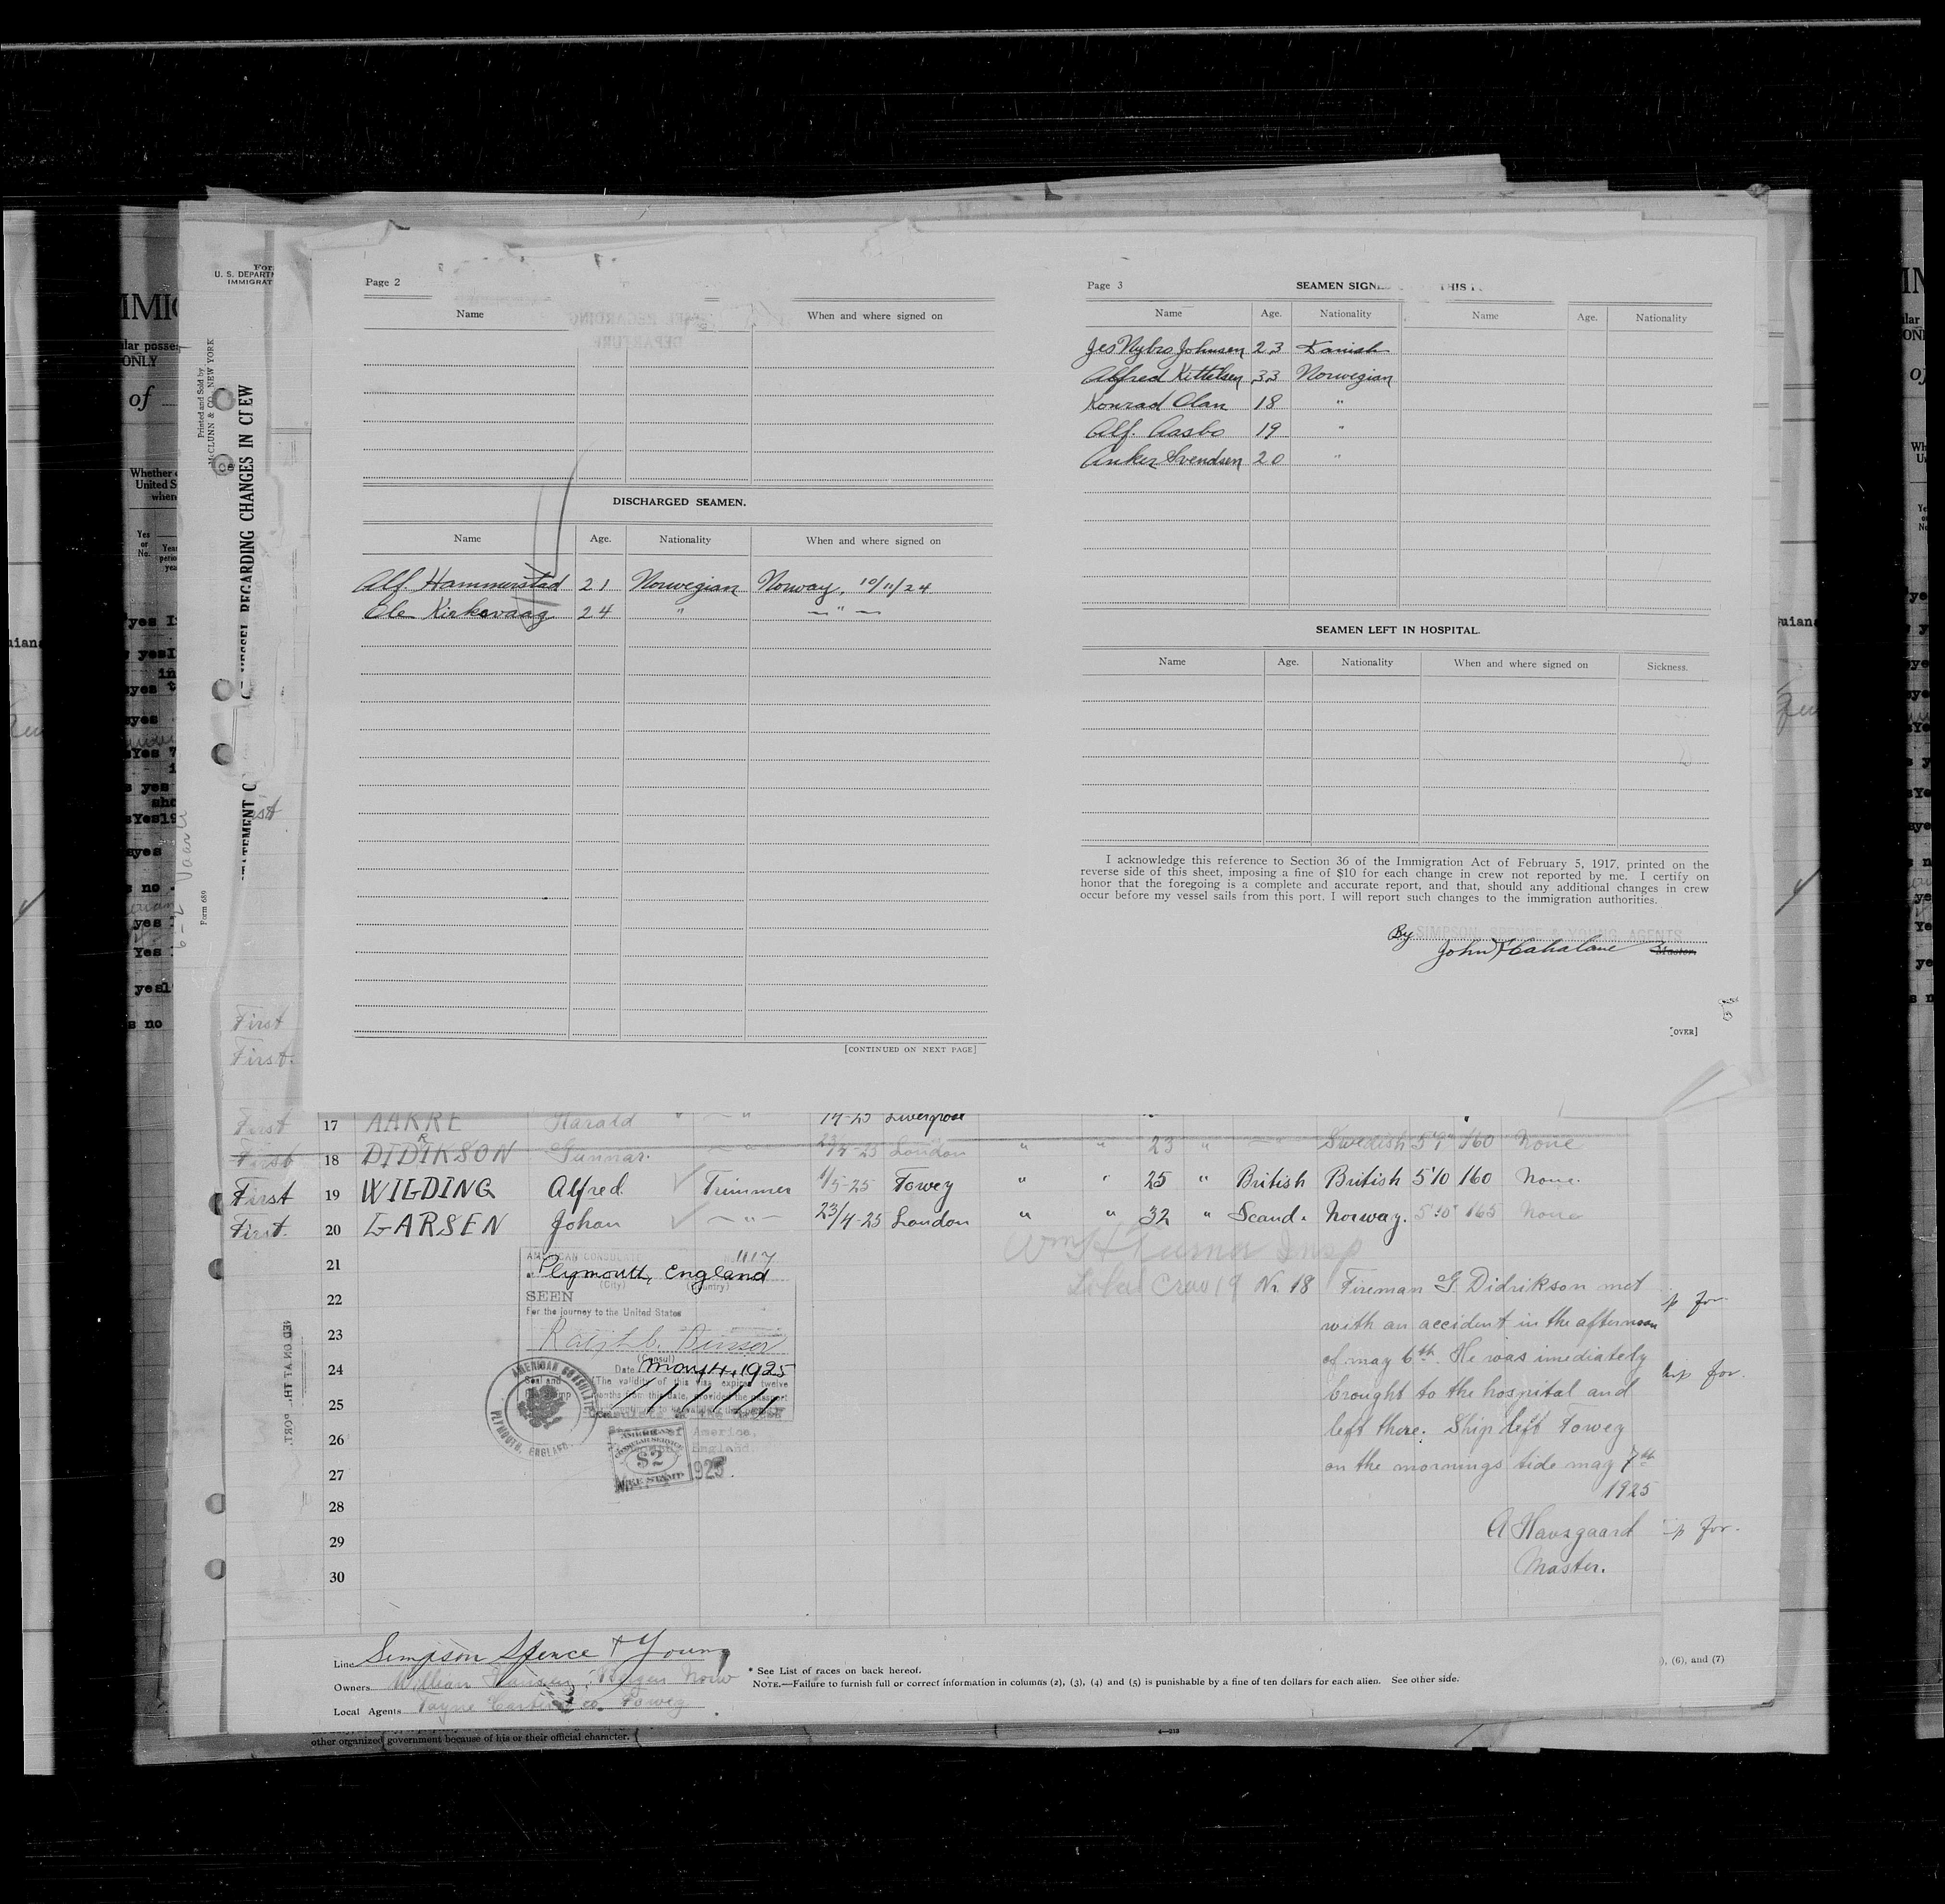 Page 2
Name When and where signed on
DISCHARGED SEAMEN.
Name Age. Nationality When and where signed on
Alf. Hammerstad 21 Norwegian Norway, 10/11/24
Ole Kirkevaag 24 " — " —
[CONTINUED ON NEXT PAGE]
Page 3 SEAMEN SIGN THIS
Name Age. Nationality Name Age. Nationality
Jes Nybro Johnsen 23 Danish
Alfred Kittelsen 33 Norwegian
Konrad Olan 18 "
Alf. Aasbo 19 "
Anker Svendsen 20 "
SEAMEN LEFT IN HOSPITAL.
Name Age. Nationality When and where signed on Sickness.
I acknowledge this reference to Section 36 of the Immigration Act of February 5, 1917, printed on the
reverse side of this sheet, imposing a fine of $10 for each change in crew not reported by me. I certify on
honor that the foregoing is a complete and accurate report, and that, should any additional changes in crew
occur before my vessel sails from this port, I will report such changes to the immigration authorities.
By SIMPSON, SPENCE & YOUNG, AGENTS
John F Cahalane Master.
[OVER]
U. S. DEPARTM
IMMIGRAT
Printed and Sold by
McCLUNN & CO., NEW YORK
REGARDING CHANGES IN CREW
Form 689
First
First.
First 17 AAKRE Harald — " 14-25 Liverpool
First 18 DIDRIKSON Gunnar. — " — London " " 23 " — " — Swedish 5'9" 160 None
First 19 WILDING Alfred. Trimmer 1/5-25 Fowey " " 25 " British British 5'10 160 None.
First. 20 LARSEN Johan — " — 23/4-25 London " " 32 " Scand. Norway. 5'10" 165 None
21
22
23
24
25
26
27
28
29
30
Wm H Turner Insp
AMERICAN CONSULATE No. 1117
at Plymouth, England
(City) (Country)
SEEN
For the journey to the United States
(Consul)
Date May 4, 1925
(The validity of this visa expires twelve
months from this date, provided the passport
AMERICAN CONSULATE
PLYMOUTH, ENGLAND.
America,
England.
AMERICAN
CONSULAR SERVICE
$2
FEE STAMP
1925
Nr 18 Fireman G Didrikson met
with an accident in the afternoon
of may 6th. He was imediately
brought to the hospital and
left there. Ship left Fowey
on the mornings tide may 7th
1925
A Havsgaard
Master.
Line Simpson Spence & Young
Owners William Hansen, Bergen Norw
Local Agents Toyne Carter & co. Fowey
* See List of races on back hereof.
NOTE.—Failure to furnish full or correct information in columns (2), (3), (4) and (5) is punishable by a fine of ten dollars for each alien. See other side.
), (6), and (7)
other organized government because of his or their official character.